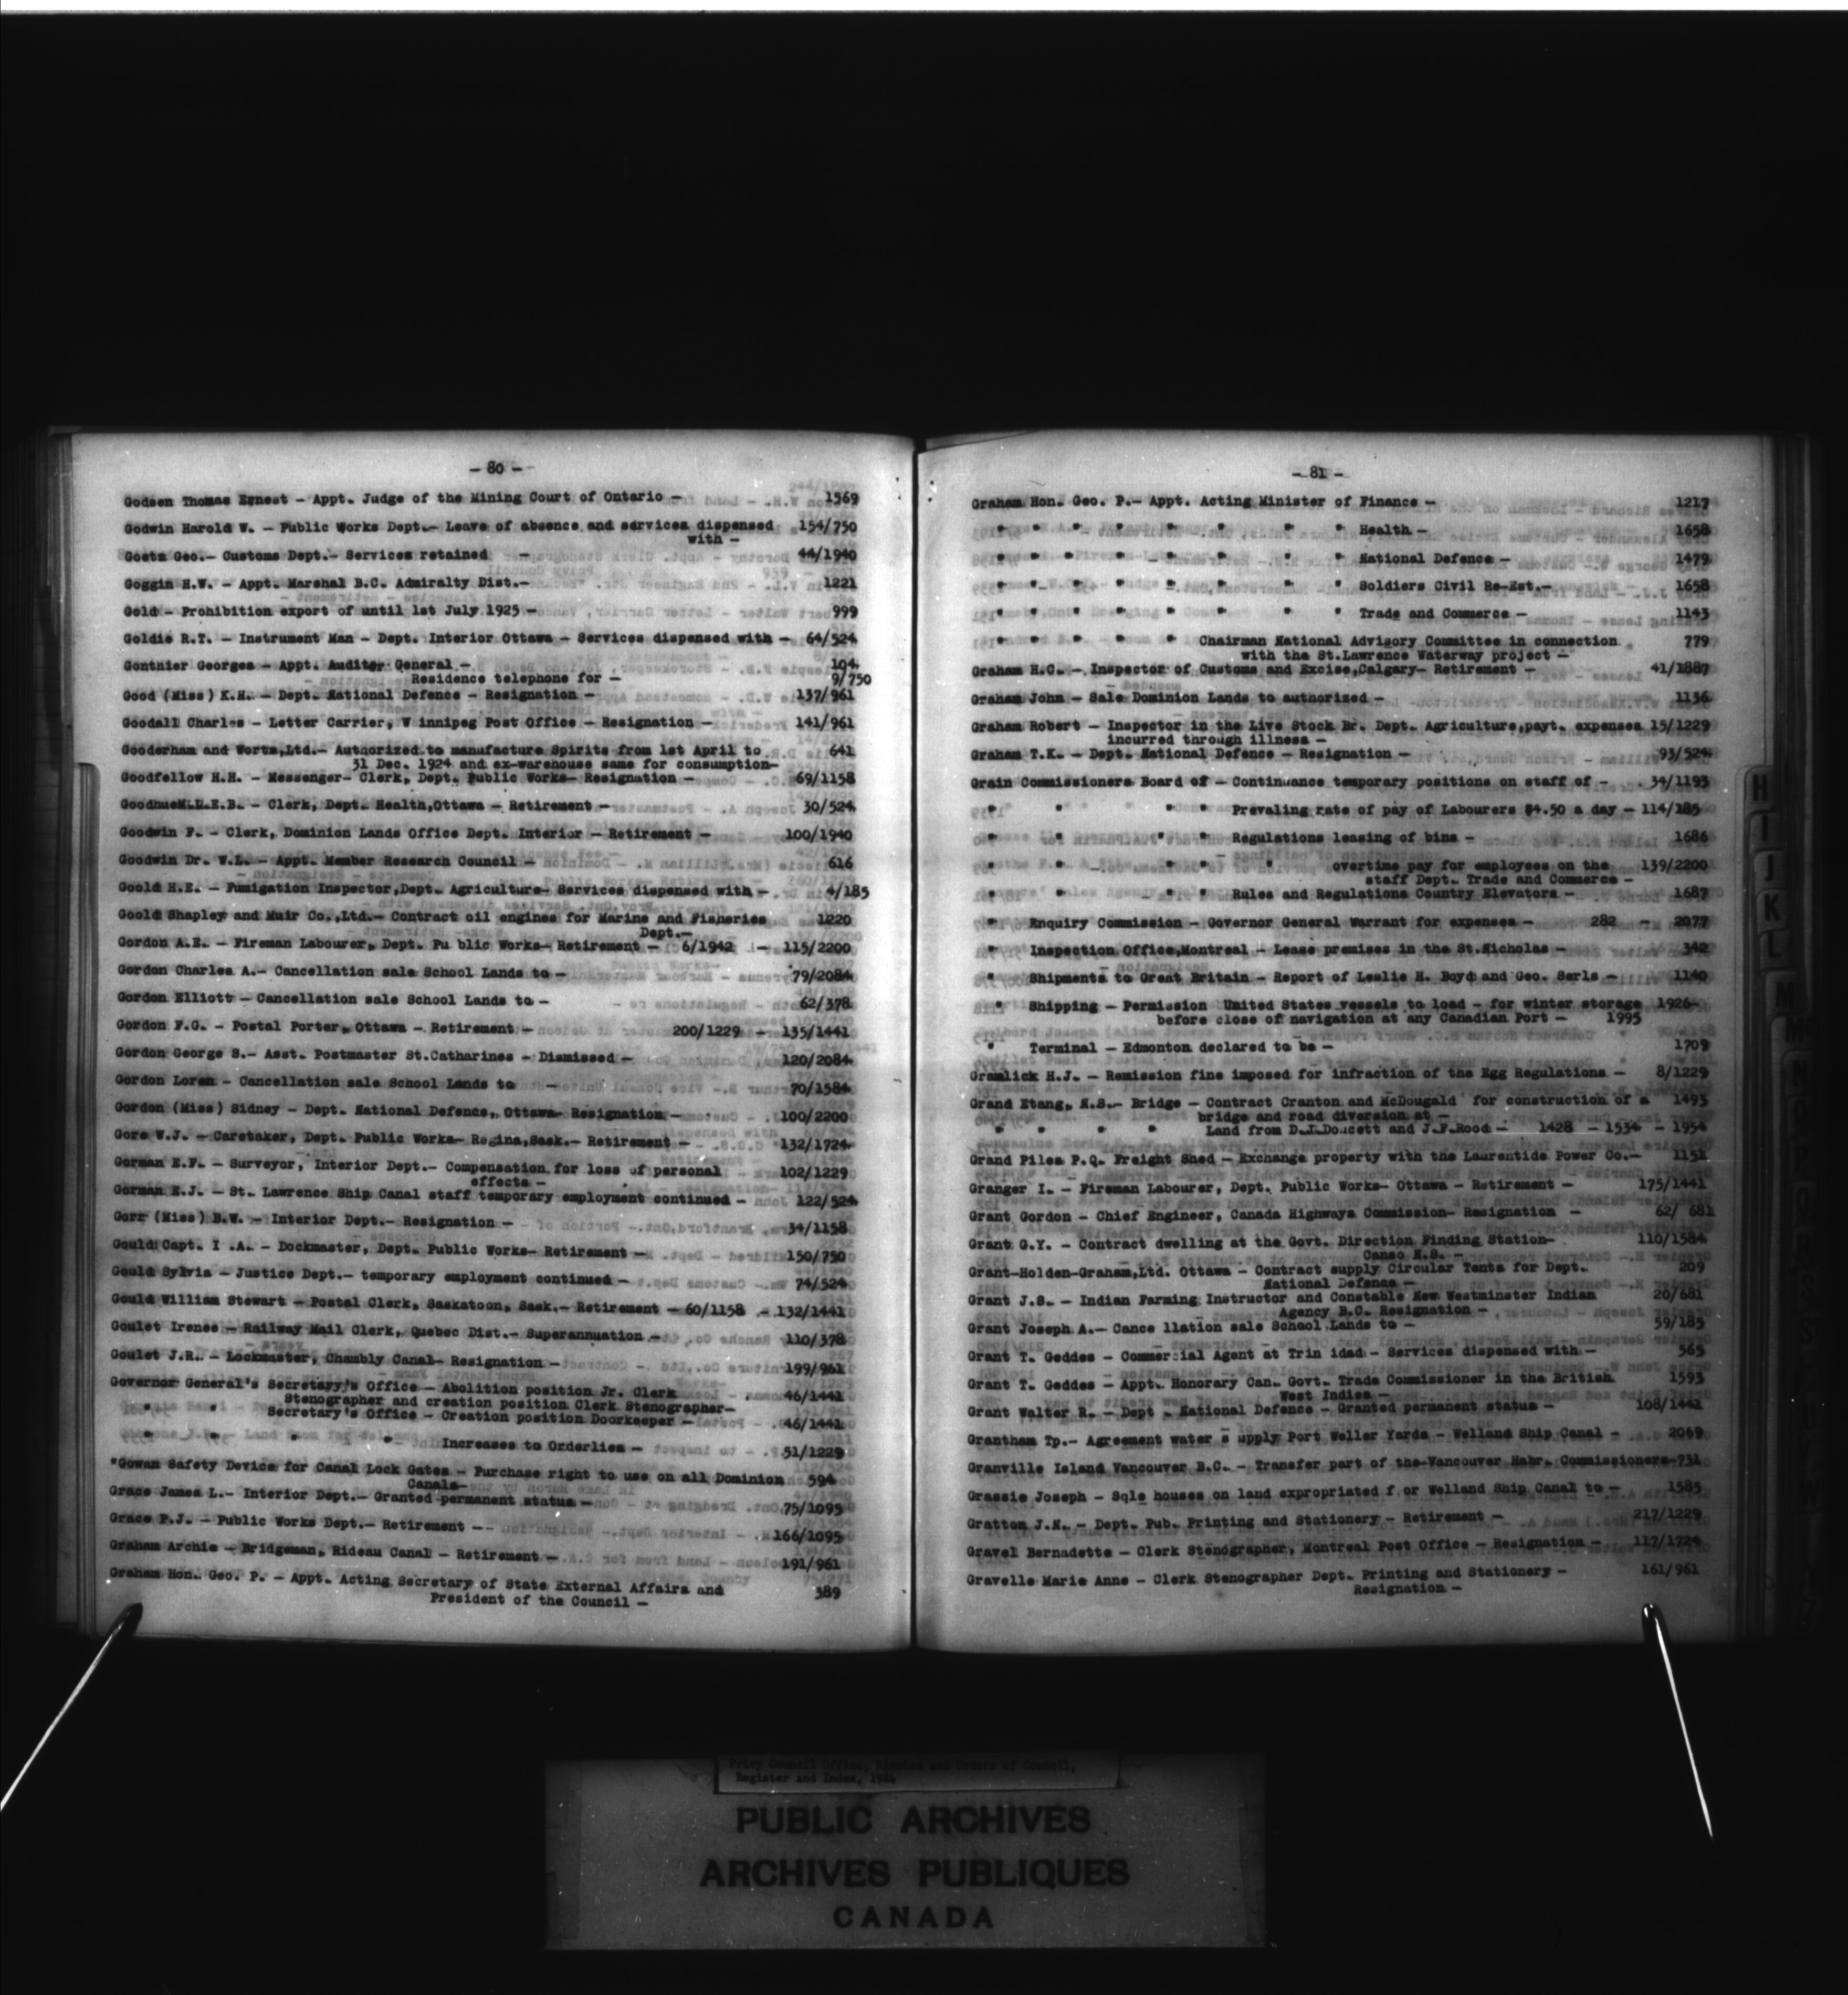 - 80 -
Godsen Thomas Ernest - Appt. Judge of the Mining Court of Ontario - 1569
Godwin Harold W. - Public Works Dept.- Leave of absence and services dispensed 154/750
with -
Goetz Geo.- Customs Dept.- Services retained - 44/1940
Goggin H.W. - Appt. Marshal B.C. Admiralty Dist.- 1221
Gold - Prohibition export of until 1st July 1925 - 999
Goldie R.T. - Instrument Man - Dept. Interior Ottawa - Services dispensed with - 64/524
Gonthier Georges - Appt. Auditor General - 104
Residence telephone for - 9/750
Good (Miss) K.H. - Dept. National Defence - Resignation - 137/961
Goodall Charles - Letter Carrier, W innipeg Post Office - Resignation - 141/961
Gooderham and Worts,Ltd.- Authorized to manufacture Spirits from 1st April to 641
31 Dec. 1924 and ex-warehouse same for consumption-
Goodfellow H.H. - Messenger- Clerk, Dept. Public Works- Resignation - 69/1158
GoodhueM.M.E.B. - Clerk, Dept. Health,Ottawa - Retirement - 30/524
Goodwin F. - Clerk, Dominion Lands Office Dept. Interior - Retirement - 100/1940
Goodwin Dr. W.L. - Appt. Member Research Council - 616
Goold H.E. - Fumigation Inspector,Dept. Agriculture- Services dispensed with - 4/185
Goold Shapley and Muir Co.,Ltd.- Contract oil engines for Marine and Fisheries 1220
Dept.-
Gordon A.E. - Fireman Labourer, Dept. Pu blic Works- Retirement - 6/1942 - 115/2200
Gordon Charles A.- Cancellation sale School Lands to - 79/2084
Gordon Elliott - Cancellation sale School Lands to - 62/378
Gordon F.G. - Postal Porter, Ottawa - Retirement - 200/1229 - 135/1441
Gordon George S.- Asst. Postmaster St.Catharines - Dismissed - 120/2084
Gordon Loran - Cancellation sale School Lands to - 70/1584
Gordon (Miss) Sidney - Dept. National Defence, Ottawa- Resignation - 100/2200
Gore W.J. - Caretaker, Dept. Public Works- Regina,Sask.- Retirement - 132/1724
Gorman E.F. - Surveyor, Interior Dept.- Compensation for loss of personal 102/1229
effects -
Gorman E.J. - St. Lawrence Ship Canal staff temporary employment continued - 122/524
Gorr (Miss) B.W. - Interior Dept.- Resignation - 34/1158
Gould Capt. I .A. - Dockmaster, Dept. Public Works- Retirement - 150/750
Gould Sylvia - Justice Dept.- temporary employment continued - 74/524
Gould William Stewart - Postal Clerk, Saskatoon, Sask.- Retirement - 60/1158 - 132/1441
Goulet Irenee - Railway Mail Clerk, Quebec Dist.- Superannuation - 110/378
Goulet J.R. - Lockmaster, Chambly Canal- Resignation - 199/961
Governor General's Secretary's Office - Abolition position Jr. Clerk 46/1441
Stenographer and creation position Clerk Stenographer-
" " Secretary's Office - Creation position Doorkeeper - 46/1441
" " " " Increases to Orderlies - 51/1229
"Gowan Safety Device for Canal Lock Gates - Purchase right to use on all Dominion 594
Canals-
Grace James L.- Interior Dept.- Granted permanent status - 75/1095
Grace P.J. - Public Works Dept.- Retirement - 166/1095
Graham Archie - Bridgeman, Rideau Canal - Retirement - 191/961
Graham Hon. Geo. P. - Appt. Acting Secretary of State External Affairs and 389
President of the Council -
- 81 -
Graham Hon. Geo. P.- Appt. Acting Minister of Finance - 1217
" " " " " " " " Health - 1658
" " " " " " " " National Defence - 1479
" " " " " " " " Soldiers Civil Re-Est.- 1658
" " " " " " " " Trade and Commerce - 1143
" " " " " " Chairman National Advisory Committee in connection 779
with the St.Lawrence Waterway project -
Graham H.C. - Inspector of Customs and Excise,Calgary- Retirement - 41/1887
Graham John - Sale Dominion Lands to authorized - 1136
Graham Robert - Inspector in the Live Stock Br. Dept. Agriculture,payt. expenses 15/1229
incurred through illness -
Graham T.K. - Dept. National Defence - Resignation - 93/524
Grain Commissioners Board of - Continuance temporary positions on staff of - 34/1193
" " " " Prevaling rate of pay of Labourers $4.50 a day - 114/185
" " " " Regulations leasing of bins - 1686
" " " " " overtime pay for employees on the 139/2200
staff Dept. Trade and Commerce -
" " " " Rules and Regulations Country Elevators - 1687
" Enquiry Commission - Governor General Warrant for expenses - 282 - 2077
" Inspection Office,Montreal - Lease premises in the St.Nicholas - 342
" Shipments to Great Britain - Report of Leslie H. Boyd and Geo. Serls - 1140
" Shipping - Permission United States vessels to load - for winter storage 1926-
before close of navigation at any Canadian Port - 1995
" Terminal - Edmonton declared to be - 1709
Gramlick H.J. - Remission fine imposed for infraction of the Egg Regulations - 8/1229
Grand Etang, N.S.- Bridge - Contract Cranton and McDougald for construction of a 1493
bridge and road diversion at -
" " " " Land from D.J.Doucett and J.F.Rood - 1428 - 1534 - 1954
Grand Piles P.Q. Freight Shed - Exchange property with the Laurentide Power Co.- 1151
Granger I. - Fireman Labourer, Dept. Public Works- Ottawa - Retirement - 175/1441
Grant Gordon - Chief Engineer, Canada Highways Commission- Resignation - 62/ 681
Grant G.Y. - Contract dwelling at the Govt. Direction Finding Station- 110/1584
Canso N.S. -
Grant-Holden-Graham,Ltd. Ottawa - Contract supply Circular Tents for Dept. 209
National Defence -
Grant J.S. - Indian Farming Instructor and Constable New Westminster Indian 20/681
Agency B.C. Resignation -
Grant Joseph A.- Cance llation sale School Lands to - 59/185
Grant T. Geddes - Commercial Agent at Trin idad - Services dispensed with - 565
Grant T. Geddes - Appt. Honorary Can. Govt. Trade Commissioner in the British 1593
West Indies -
Grant Walter R. - Dept . National Defence - Granted permanent status - 108/1441
Grantham Tp.- Agreement water s upply Port Weller Yards - Welland Ship Canal - 2069
Granville Island Vancouver B.C. - Transfer part of the Vancouver Habr. Commissioners-731
Grassie Joseph - Sqle houses on land expropriated f or Welland Ship Canal to - 1585
Gratton J.N. - Dept. Pub. Printing and Stationery - Retirement - 217/1229
Gravel Bernadette - Clerk Stenographer, Montreal Post Office - Resignation - 117/1724
Gravelle Marie Anne - Clerk Stenographer Dept. Printing and Stationery - 161/961
Resignation -
H
I
J
K
L
M
Privy Council Office, Minutes and Orders of Council,
Register and Index, 1924
PUBLIC ARCHIVES
ARCHIVES PUBLIQUES
CANADA